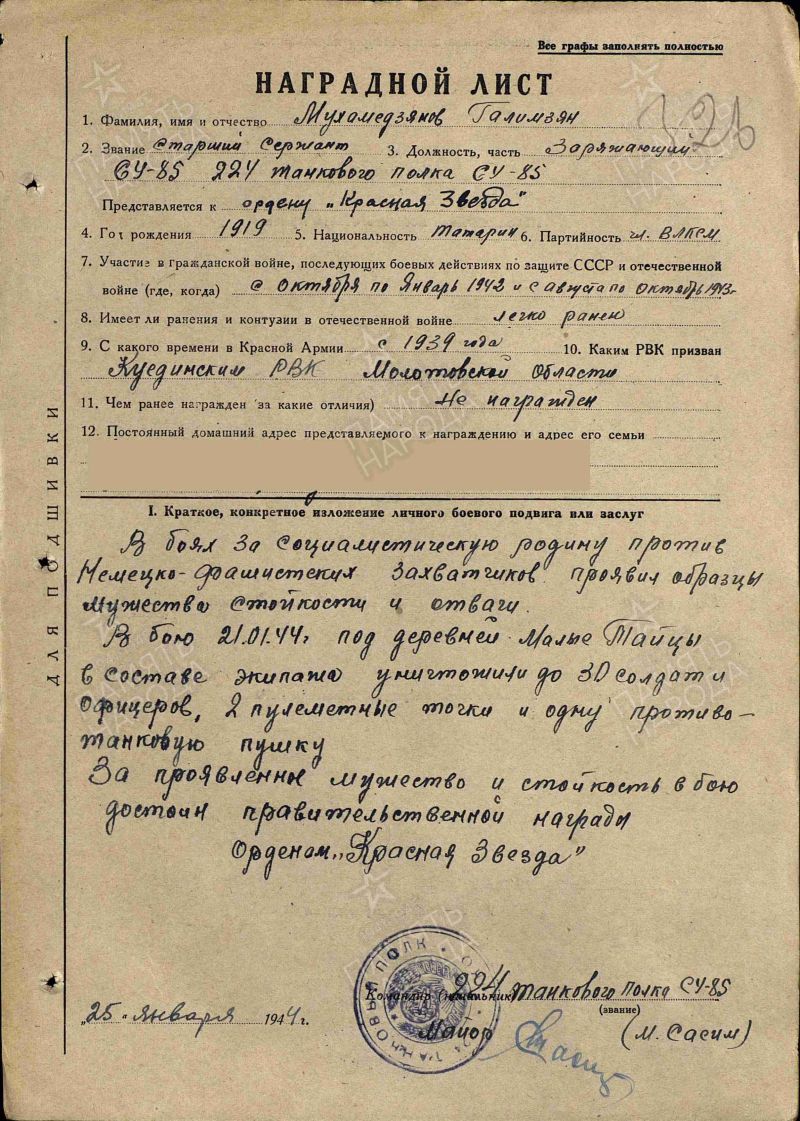 Все графы заполнять полностью
НАГРАДНОЙ ЛИСТ
326
1. Фамилия, имя и отчество Мухамедзянов Галимзян
2. Звание Старший Сержант 3. Должность, часть Заряжающий
СУ-85 224 танкового полка СУ-85
Представляется к ордену „Красная Звезда"
4. Год рождения 1919 5. Национальность татарин 6. Партийность чл. ВЛКСМ
7. Участие в гражданской войне, последующих боевых действиях по защите СССР и отечественной
войне (где, когда) с октября по Январь 1942 и с августа по октябрь 1943г
8. Имеет ли ранения и контузии в отечественной войне легко ранен
9. С какого времени в Красной Армии с 1939 года 10. Каким РВК призван
Куединским РВК Молотовской Области
11. Чем ранее награжден за какие отличия) Не награжден
12. Постоянный домашний адрес представляемого к награждению и адрес его семьи
I. Краткое, конкретное изложение личного боевого подвига или заслуг
В боях за социалистическую родину против
Немецко-фашистских захватчиков проявил образцы
мужества стойкости и отваги.
В бою 21.01.44г под деревней Малые Тайцы
в составе экипажа уничтожили до 30 солдат и
офицеров, 2 пулеметные точки и одну противо-
танковую пушку
За проявленное мужество и стойкость в бою
достоин правительственной награды
Орденом „Красная Звезда"
Командир (начальник) 224 танкового полка СУ-85
(звание)
„25" января 1944г.
Майор (М. Сасим)
ТАНКОВЫЙ ПОЛК
ДЛЯ ПОДШИВКИ
ПАМЯТЬ НАРОДА